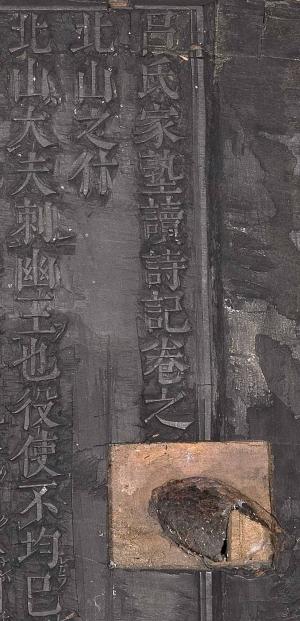 呂氏家塾讀詩記卷之
北山之什
北山大夫刺幽王也役使不均已